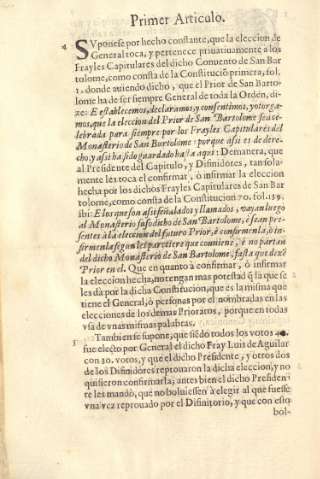 Primer Articulo.
SVponese por hecho constante, que la eleccion de
General toca, y pertenece priuatiuamente a los
Frayles Capitulares del dicho Conuento de San Bar
tolome, como consta de la Constituciõ primera, fol.
1. donde auiendo dicho, que el Prior de San Barto-
lome ha de ser siempre General de toda la Orden, di-
ze: E establecemos, declaramos, y consentimos, y otorga-
mos, que la eleccion del Prior de San Bartolome sea ce-
lebrada para siempre por los Frayles Capitulares del
Monasterio de San Bortolome: porque assi es de dere-
cho, y assi ha sido guardado hasta aqui: Demanera, que
al Presidente del Capitulo, y Disinidores, tan sola-
mente les toca el confirmar, ò infirmar la eleccion
hecha por los dichos Frayles Capitulares de San Bar
tolome, como consta de la Constitucion 70. fol. 159.
ibi: E los que son assi señalados y llamados, vayan luego
al Monasterio suso dicho de San Bartolome, è sean pre-
sentes à la eleccion del futuro Prior, è confirmenla, ò in-
firmenla segun les pareciere que conuiene, è no partan
del dicho Monasterio de San Bartolome, fasta que dexẽ
Prior en el. Que en quanto à confirmar, ò infirmar
la eleccion hecha, no tengan mas potestad q̃ la que se
les dà por la dicha Constitucion, que es la misma que
tiene el General, ò personas por el nombradas en las
elecciones de los demas Prioratos, porque en todas
vsa de vnas mismas palabras.
Tambien se supone, que siẽdo todos los votos
fue electo por General el dicho Fray Luis de Aguilar
con 30. votos, y que el dicho Presidente, y otros dos
de los Disinidores reprouaron la dicha eleccion, y no
quisieron confirmarla; antes bien el dicho Presiden
te les mandò, que no boluiessen à elegir al que fuesse
vna vez reprouado por el Disinitorio, y que con esto
bol-